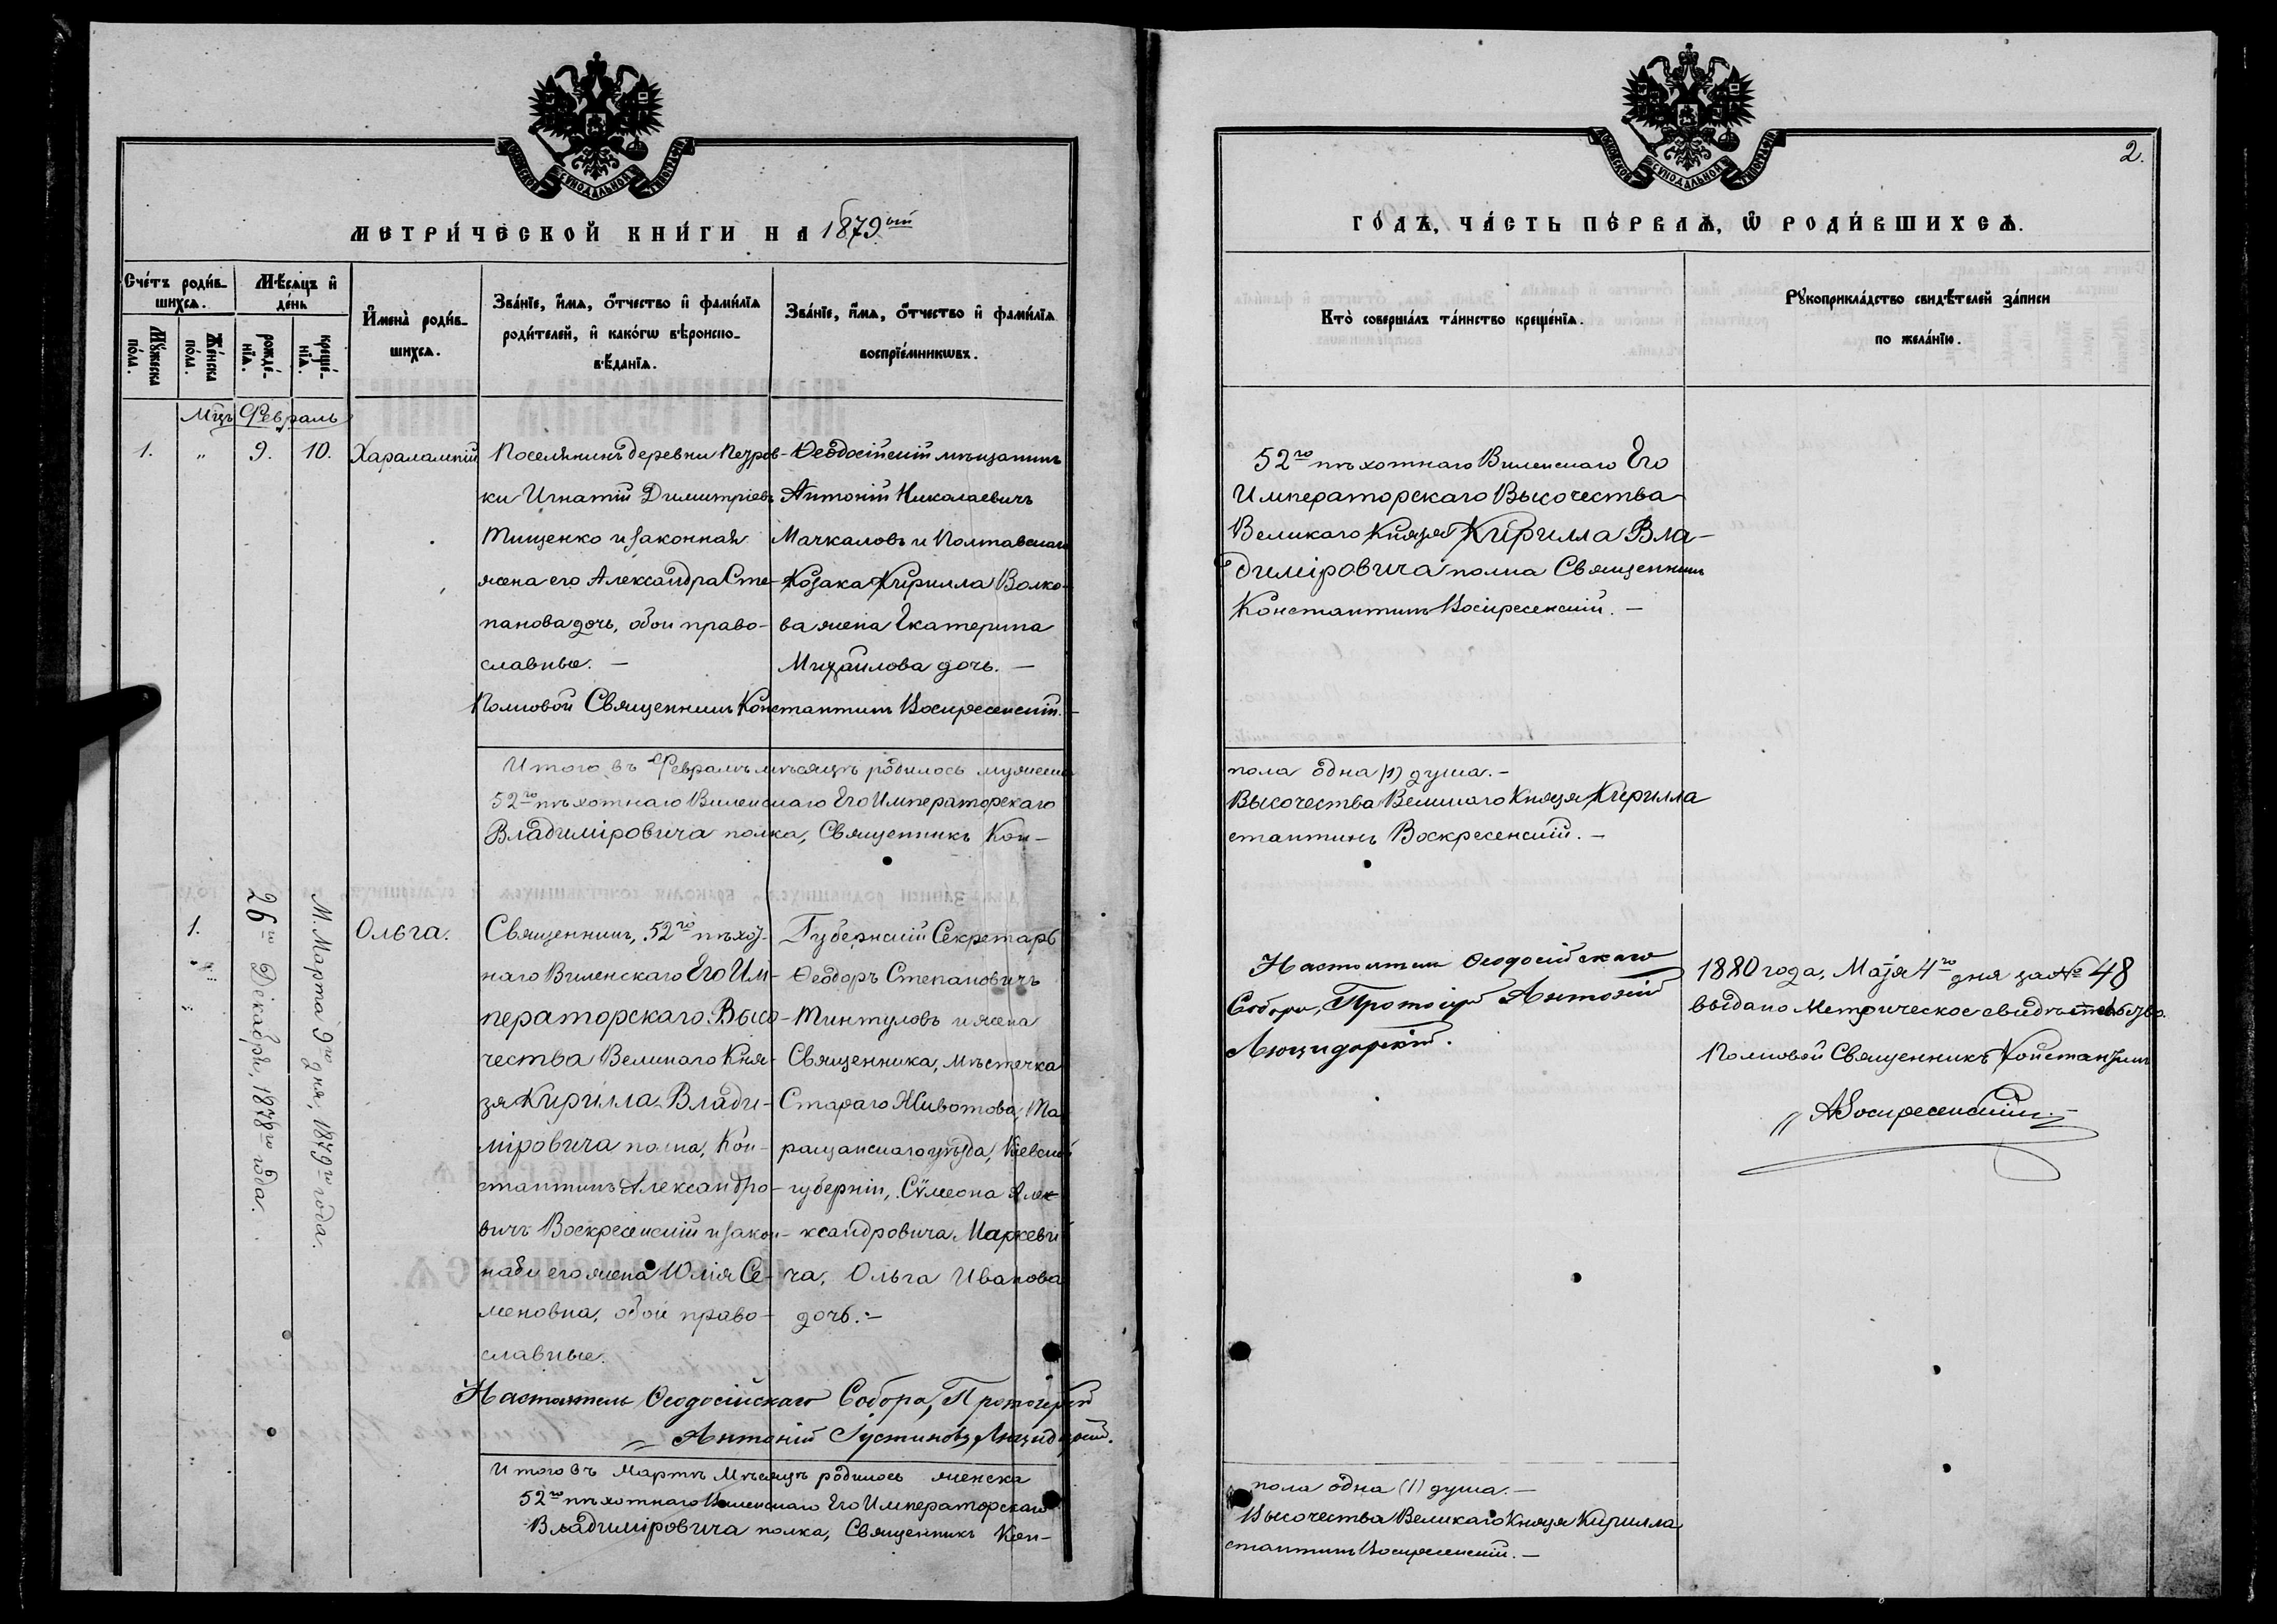 МОСКОВСКОЙ СѴНОДАЛЬНОЙ ТИПОГРАФІИ
МЕТРИ́ЧЕСКОЙ КНИ́ГИ НА 1879ый
Сче́тъ роди́в-
шихсѧ.
Мѣ́сяцъ и҆
де́нь
И҆мена̀ роди́в-
шихсѧ.
Зва́нїе, и҆́мѧ, ѻ҆́тчество и҆ фами́лїѧ
роди́телей, и҆ како́гѡ вѣроиспо-
вѣ́данїѧ.
Зва́нїе, и҆́мѧ, ѻ҆́тчество и҆ фами́лїѧ
воспрїе́мникѡвъ.
Мꙋ́жеска
по́ла.
Же́нска
по́ла.
рожде́-
нїѧ.
креще́-
нїѧ.
Мцъ Февраль
1. " 9. 10. Харалампій
Поселянинъ деревни Петров-
ки Игнатій Димитріевъ
Тищенко и законная
жена его Александра Сте-
панова дочь, обои право-
славные. —
Ѳеодосійскій мѣщанинъ
Антоній Николаевичъ
Мачкаловъ и Полтавскаго
Козака Кирилла Волко-
ва жена Екатерина
Михайлова дочь. —
Полковой Священникъ Константинъ Воскресенскій. —
Итого въ Февралѣ мѣсяцѣ родилось мужеска
52го пѣхотнаго Виленскаго Его Императорскаго
Владиміровича полка, Священникъ Кон-
1.
26го Декабря, 1878го года.
М. Марта 9го дня, 1879го года.
Ольга.
Священникъ, 52го пѣхот-
наго Виленскаго Его Им-
ператорскаго Высо-
чества Великаго Кня-
зя Кирилла Влади-
міровича полка, Кон-
стантинъ Александро-
вичъ Воскресенскій и закон-
ная его жена Юлія Се-
меновна, обои право-
славные.
Губернскій Секретарь
Ѳеодоръ Степановичъ
Тинтуловъ и жена
Священника, Мѣстечка
Стараго Животова, Та-
ращанскаго уѣзда, Кіевской
губерніи, Сѵмеона Алек-
ксандровича Маркеви-
ча, Ольга Иванова
дочь. —
Настоятель Ѳеодосійскаго Собора, Протоіерей
Антоній Іустиновъ
Итого въ Мартѣ Мѣсяцѣ родилось женска
52го пѣхотнаго Виленскаго Его Императорскаго
Владиміровича полка, Священникъ Кон-
МОСКОВСКОЙ СѴНОДАЛЬНОЙ ТИПОГРАФІИ
2.
ГО́ДЪ, ЧА́СТЬ ПЕ́РВАѦ, Ѽ РОДИ́ВШИХСѦ.
Кто̀ соверша́лъ та́инство креще́нїѧ.
Рꙋкоприкла́дство свидѣ́телей за́писи
по жела́нїю.
52го пѣхотнаго Виленскаго Его
Императорскаго Высочества
Великаго Князя Кирилла Вла-
диміровича полка Священникъ
Константинъ Воскресенскій. —
пола одна (1) душа. —
Высочества Великаго Князя Кирилла
стантинъ Воскресенскій. —
Настоятель Ѳеодосійскаго
Собора, Протоіерей Антоній
1880 года, Маія 4го дня за № 48
выдано Метрическое свидѣтельство.
Полковой Священникъ Константинъ
Воскресенскій. —
пола одна (1) душа. —
Высочества Великаго Князя Кирилла
стантинъ Воскресенскій. —